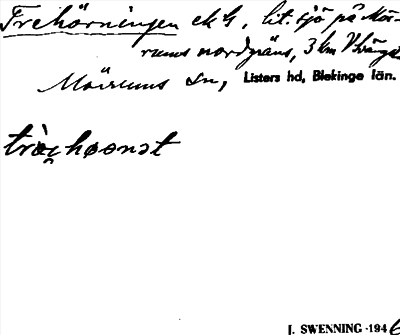 Trehörningen ek G, lit. sjö på Mör-
rums nordgräns, 3 km V
Mörrums sn, Listers hd, Blekinge län.
trèchoonat
I. SWENNING -1946